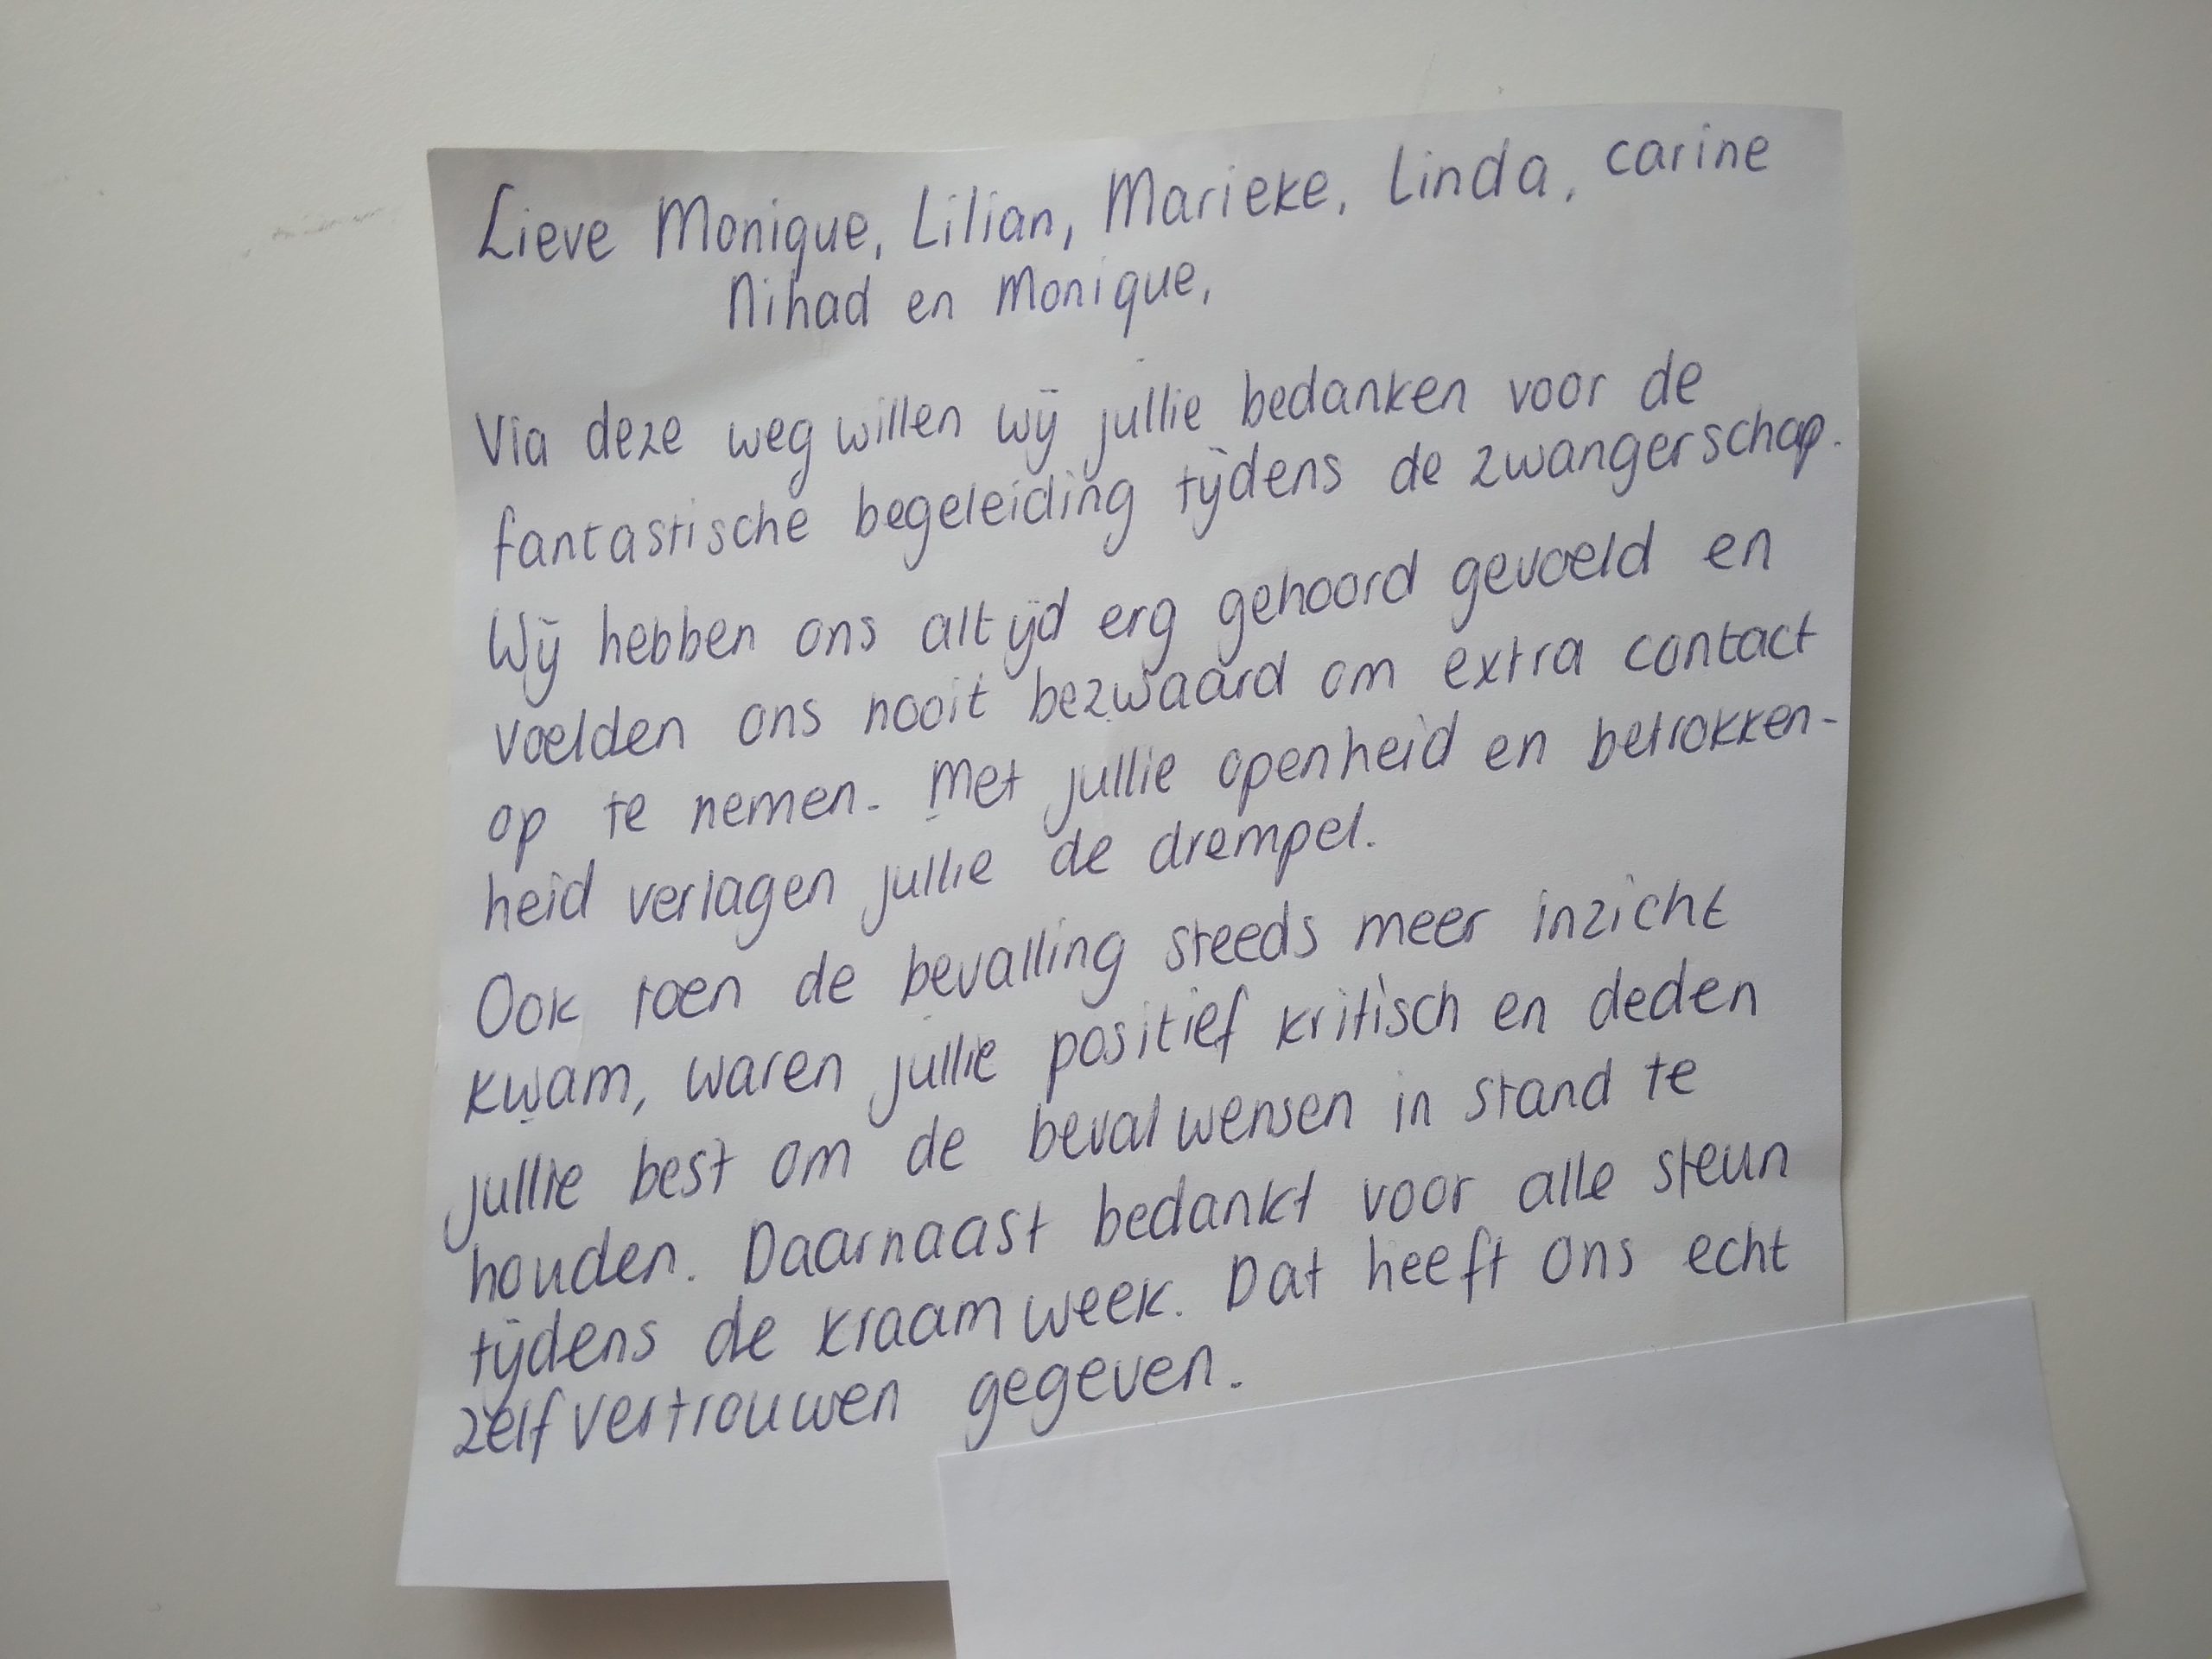 Lieve Monique, Lilian, Marieke, Linda, carine
Nihad en Monique,
Via deze weg willen wij jullie bedanken voor de
fantastische begeleiding tijdens de zwangerschap.
Wij hebben ons altijd erg gehoord gevoeld en
voelden ons nooit bezwaard om extra contact
op te nemen. Met jullie openheid en betrokken-
heid verlagen jullie de drempel.
Ook toen de bevalling steeds meer inzicht
kwam, waren jullie positief kritisch en deden
jullie best om de bevalwensen in stand te
houden. Daarnaast bedankt voor alle steun
tijdens de kraamweek. Dat heeft ons echt
zelfvertrouwen gegeven.